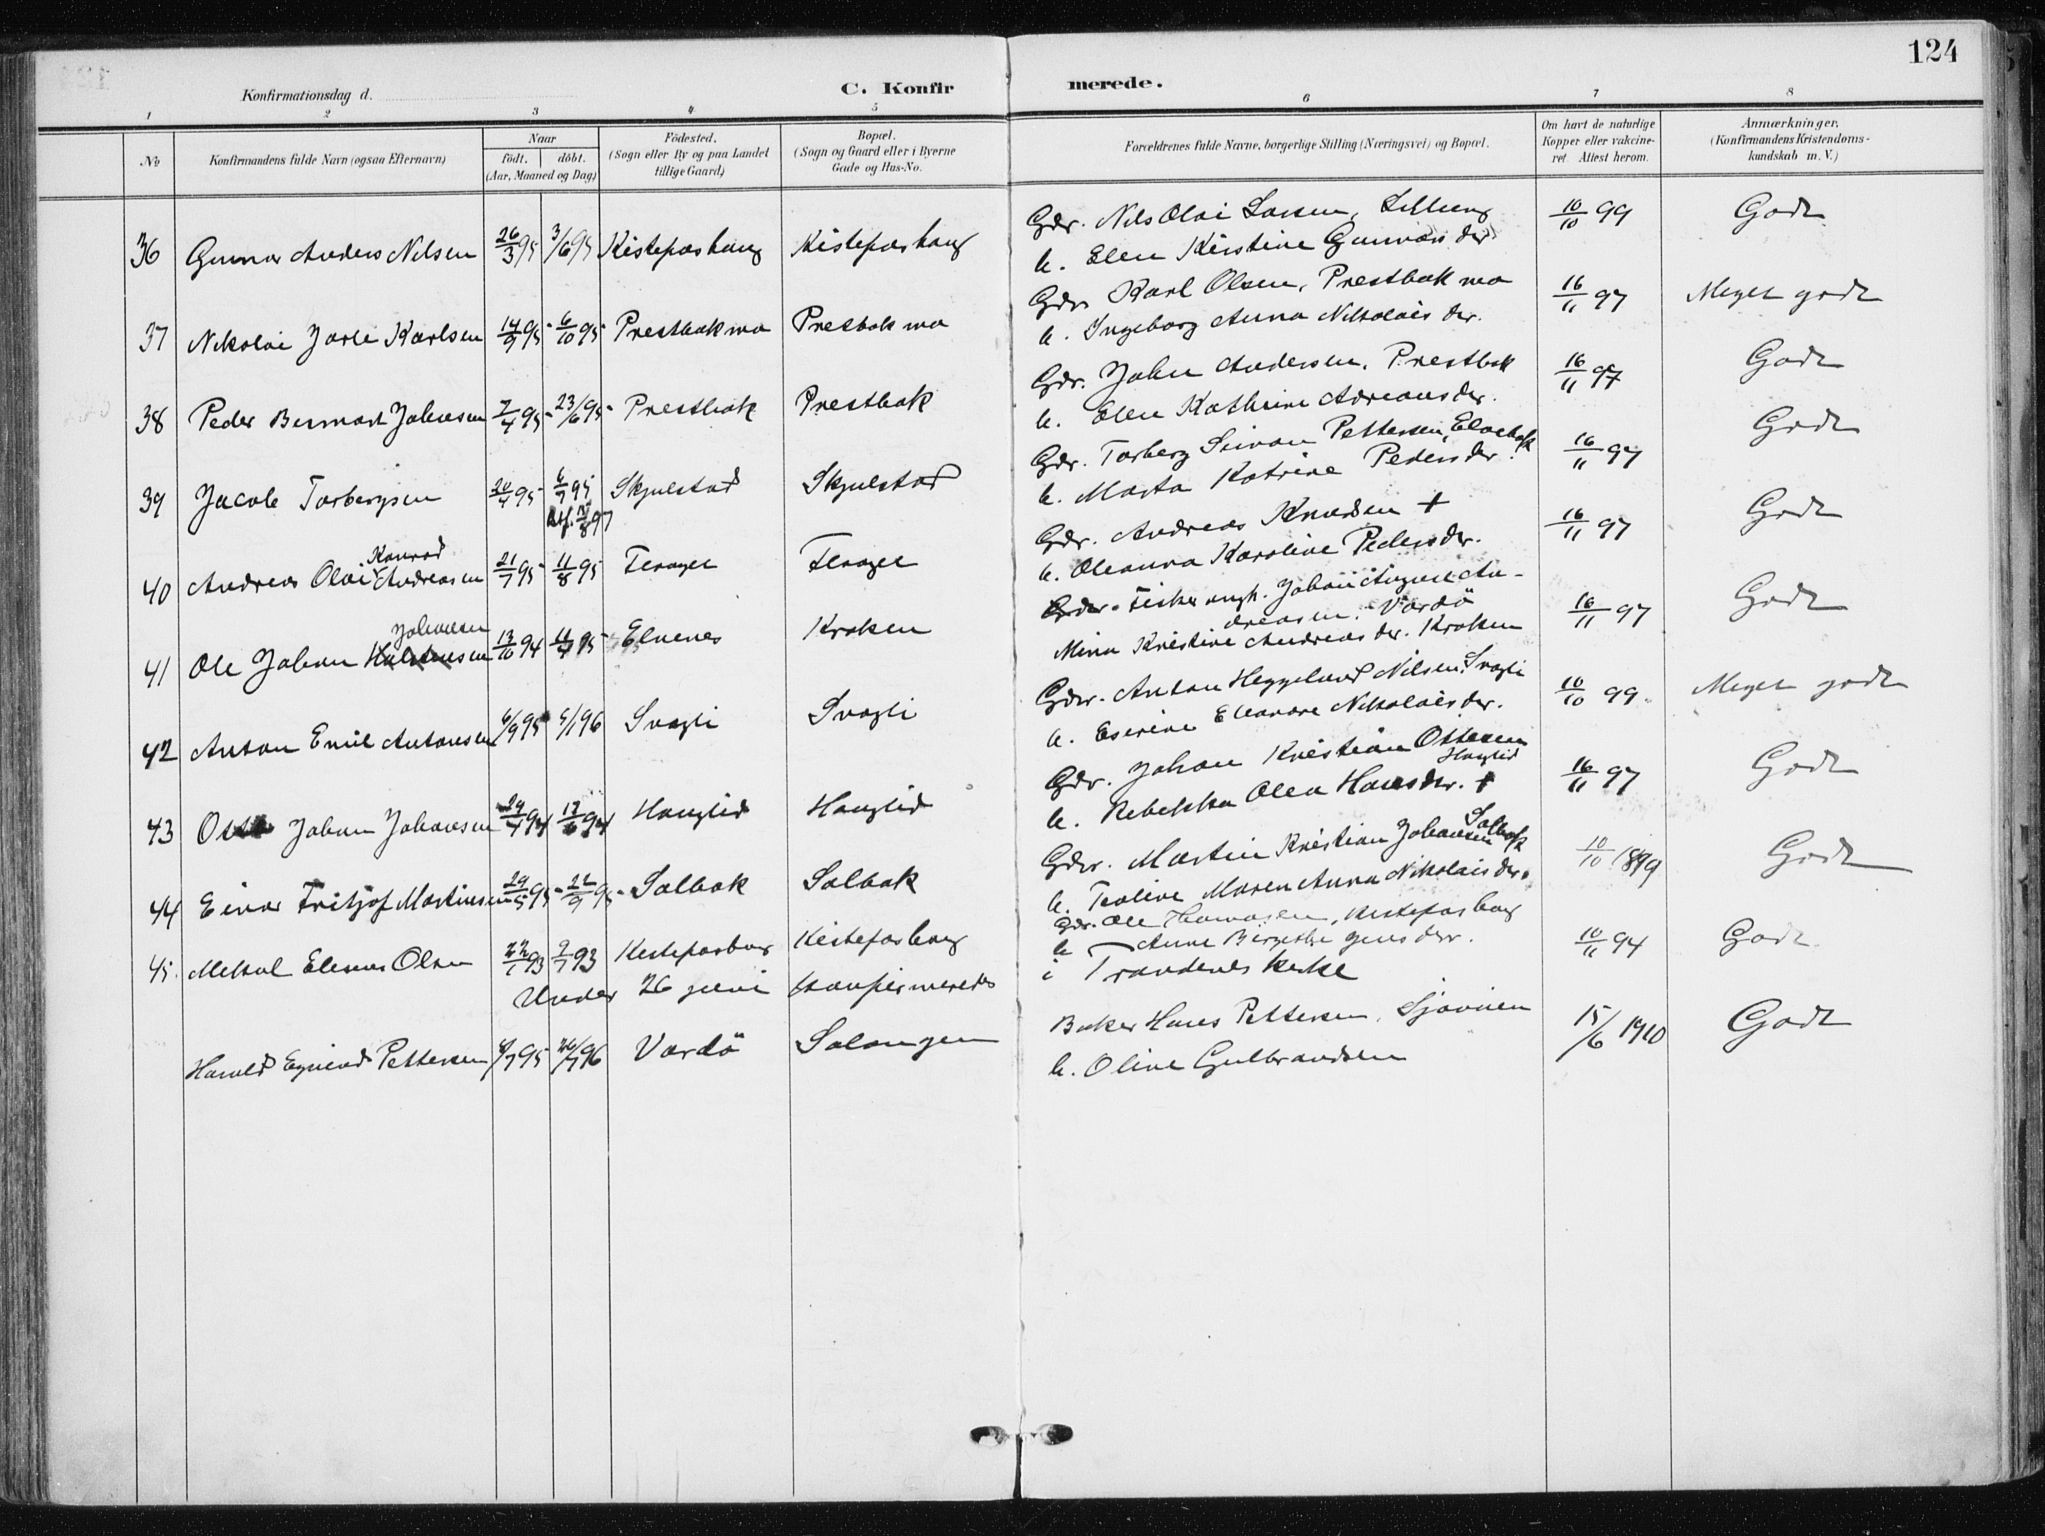 124
Konfirmationsdag d.
C. Konfirmerede.
1 2 3 4 5 6 7 8
No
Konfirmandens fulde Navn (ogsaa Efternavn)
Naar
födt. döbt.
(Aar, Maaned og Dag)
Födested.
(Sogn eller By og paa Landet
tillige Gaard)
Bopæl.
(Sogn og Gaard eller i Byerne
Gade og Hus-No.
Forældrenes fulde Navne, borgerlige Stilling (Næringsvei) og Bopæl.
Om havt de naturlige
Kopper eller vakcine-
ret. Attest herom.
Anmærkninger.
(Konfirmandens Kristendoms-
kundskab m. V.)
36 Gunnar Anders Nilsen 26/3 95 3/6 95 Kistefoshaug Kistefoshaug
Gdr. Nils Olai Larsen,
h. Elen Kirstine Gunnars dr 10/10 99 Godt
37 Nikolai Jarle Karlsen 14/9 95 6/10 95 Prestbakmo Presbakmo
Gdr. Karl Olsen, Prestbakmo
h. Ingeborg Anna Nikolais dr. 16/11 97 Meget godt
38 Peder Bernhart Johnsen 2/4 95 23/6 95 Prestbak Prestbak
Gdr. John Andersen, Prestbak
h. Elen Kathrine Adreans dr. 16/11 97 Godt
39 Jacob Torbergsen 20/4 95 6/7 95 Skjelstad Skjelstad
Gdr. Torberg Simon Pettersen, Elvebak
h. Marta Katrine Peders dr. 16/11 97 Godt
40 Andreas Olai Konrad Andreasen 21/7 95 11/8 95
Gdr. Andreas Knudsen +
h. Oleanna Karoline Peders dr. 16/11 97 Godt
41 Ole Johan Johansen 13/10 94 Elvenes Kroken
Fisker ungk. Johan August An-
dreasen. Vardö
Mina Kristine Andreas dr. Kroken 16/11 97 Godt
42 Anton Emil Antonsen 6/9 95 5/1 96 Svagli Svagli
Gdr. Anton Heggelund Nilsen, Svagli
h. Eserine Eleanore Nikolais dr. 10/10 99 Meget godt
43 Otto Johan Johansen 24/4 94 17/6 94 Hauglid Hauglid
Gdr. Johan Kristian Ottesen
Hauglid
h. Rebekka Olea Hans dr. + 16/11 97 Godt
44 Einar Fritjof Martinsen 29/5 95 22/9 95 Solbak Solbak
Gdr. Martin Kristian Johansen Solbak
h. Teoline Maren Anna Nikolais dr. 10/10 1899 Godt
45. Mikal Elenus Olsen 22/1 93 2/7 93 Kistefosbaug Kistefoshaug
Gdr. Ole Thomasen, Kistefoshaug
h Anne Birgethe Jens dr. 10/11 94 Godt
Under 26 juni konfirmeredes
i Trondenes kirke
Harald Egmund Pettersen 8/7 95 26/7 96 Vardö Salangen
Baker Hans Pettersen, Sjøveien
h. Oline Gulbrandsen 15/6 1910 Godt